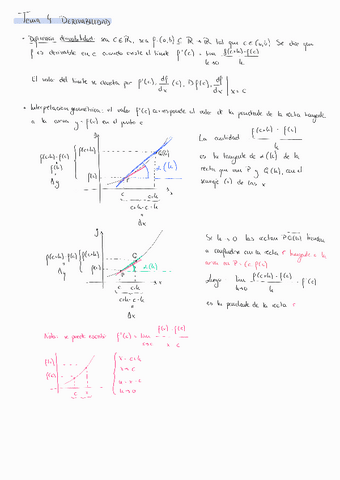 Tema 4 DERIVABILIDAD
• Definición derivabilidad: sea c∈ℝ, sea f:(a,b) ⊆ ℝ → ℝ tal que c∈(a,b). Se dice que
f es derivable en c cuando existe el límite f'(c) = lim h→0 f(c+h) - f(c) / h
El valor del límite se denota por f'(c), df/dx (c), Df(c), df/dx | x=c
• Interpretación geométrica: el valor f'(c) corresponde al valor de la pendiente de la recta tangente
a la curva y=f(x) en el punto c
La cantidad f(c+h) - f(c) / h
es la tangente de α(h) de la
recta que une P y Q(h), con el
semieje (+) de las x
f(c+h)-f(c)
f(h)
Δy
f(c+h)
f(c)
P
Q(h)
α(h)
c
c+h
c+h-c
Δx
Si h→0 las rectas PQ(h) tienden
a confundirse con la recta r tangente a la
curva en P=(c, f(c))
Luego lim h→0 f(c+h)-f(c) / h = f'(c)
es la pendiente de la recta r
f(c+h)-f(c)
Δy
f(c+h)
f(c)
P
Q
α(h)
c
c+h
c+h-c
Δx
Nota: se puede escribir: f'(c) = lim x→c f(x)-f(c) / x-c
f(x)
f(c)
c
x
x=c+h
x→c
h=x-c
h→0